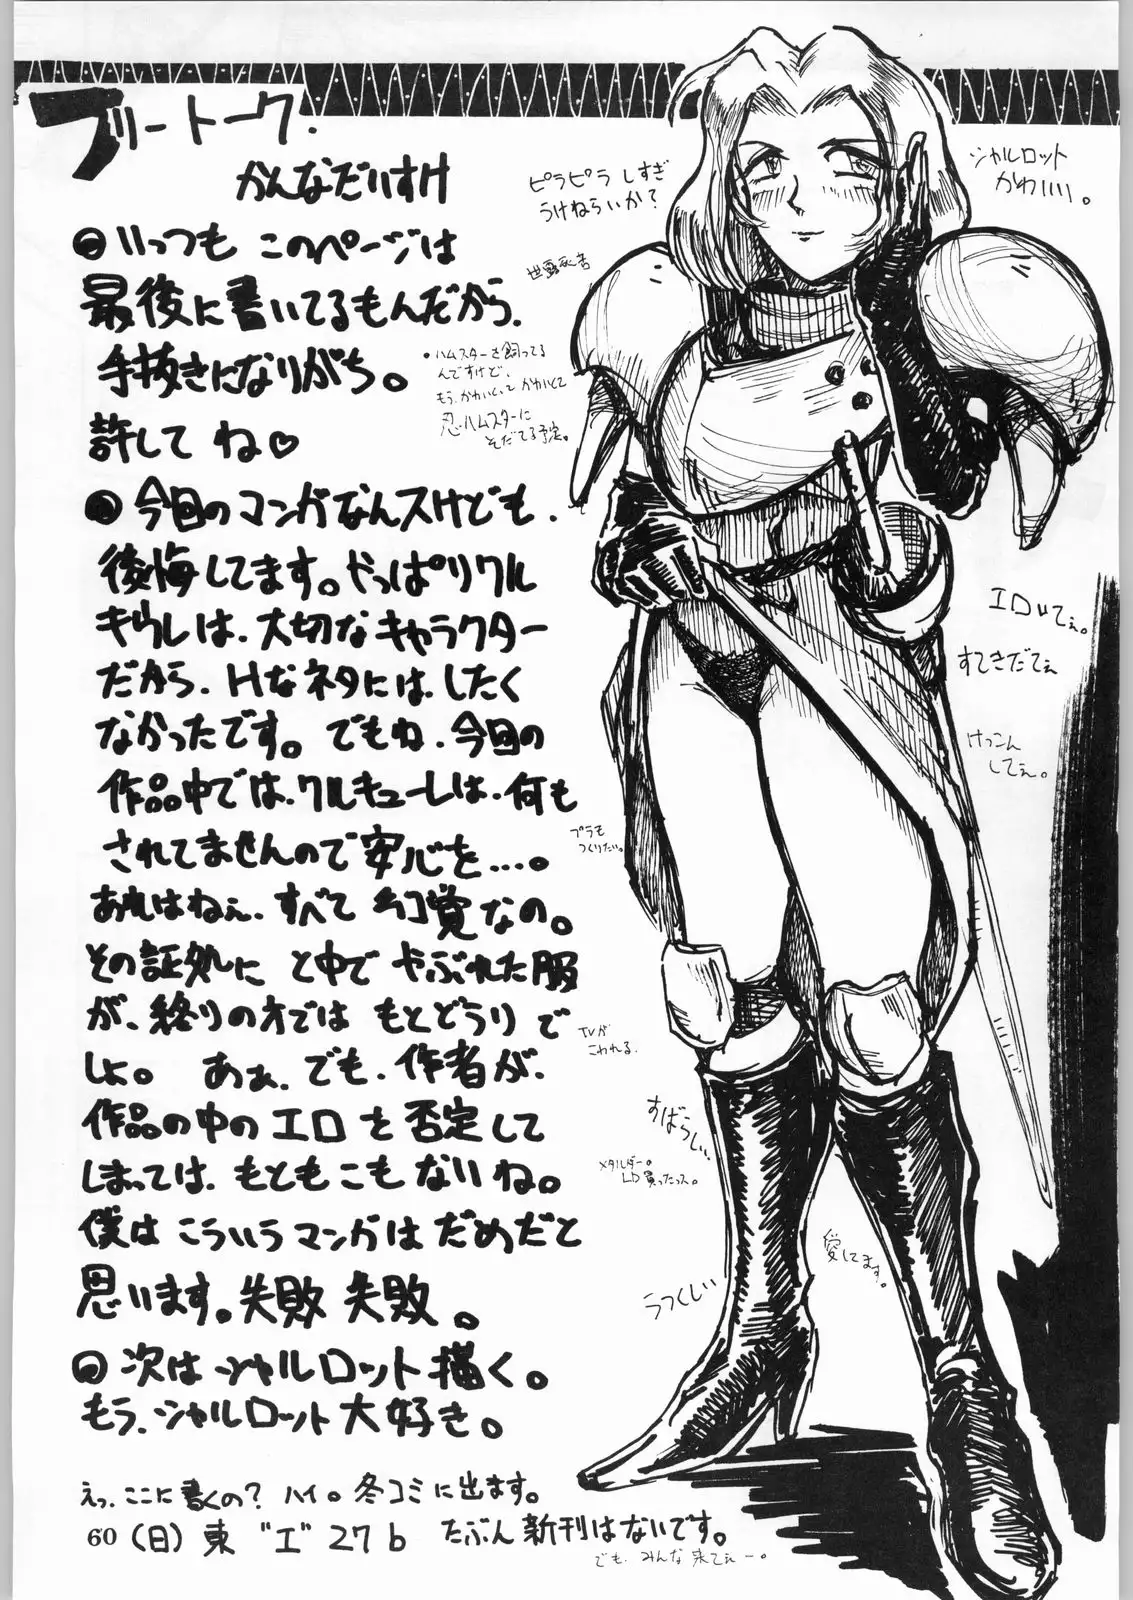 フリートーク.
かんなだいすけ
いっつも このページは
最後に書いてるもんだから、
手抜きになりがち。
許してね♡
今回のマンガなんスけども、
後悔してます。やっぱりクル
キュウレは、大切なキャラクター
だから、Hなネタには、したく
なかったです。でもね、今回の
作品中では、クルキューレは、何も
されてませんので安心を…。
あれはねぇ、すべて幻覚なの。
その証処に と中で やぶれた服
が、終りの方では もとどうりで
しょ。 あぁ、でも、作者が、
作品の中のエロを否定して
しまっては、もともこもないね。
僕はこういうマンガはだめだと
思います。失敗 失敗。
次はシャルロット描く。
もう、シャルロット大好き。
えっ、ここに書くの? ハイ。冬コミに出ます。
60 (日) 東 "エ" 27b たぶん新刊はないです。
でも、みんな来てぇー。
ピラピラ しすぎ
うけねらいか?
シャルロット
かわいいい。
・ハムスターを飼ってる
んですけど、
もう、かわいくて かわいくて
忍ハムスターに
そだてる予定。
エロいてぇ。
すてきだてぇ
けっこん
してぇ。
プラも
つくりたい。
TVが
こわれる。
すばらしい、
メタルダー。
LD買ったっス。
愛してます。
うつくしい